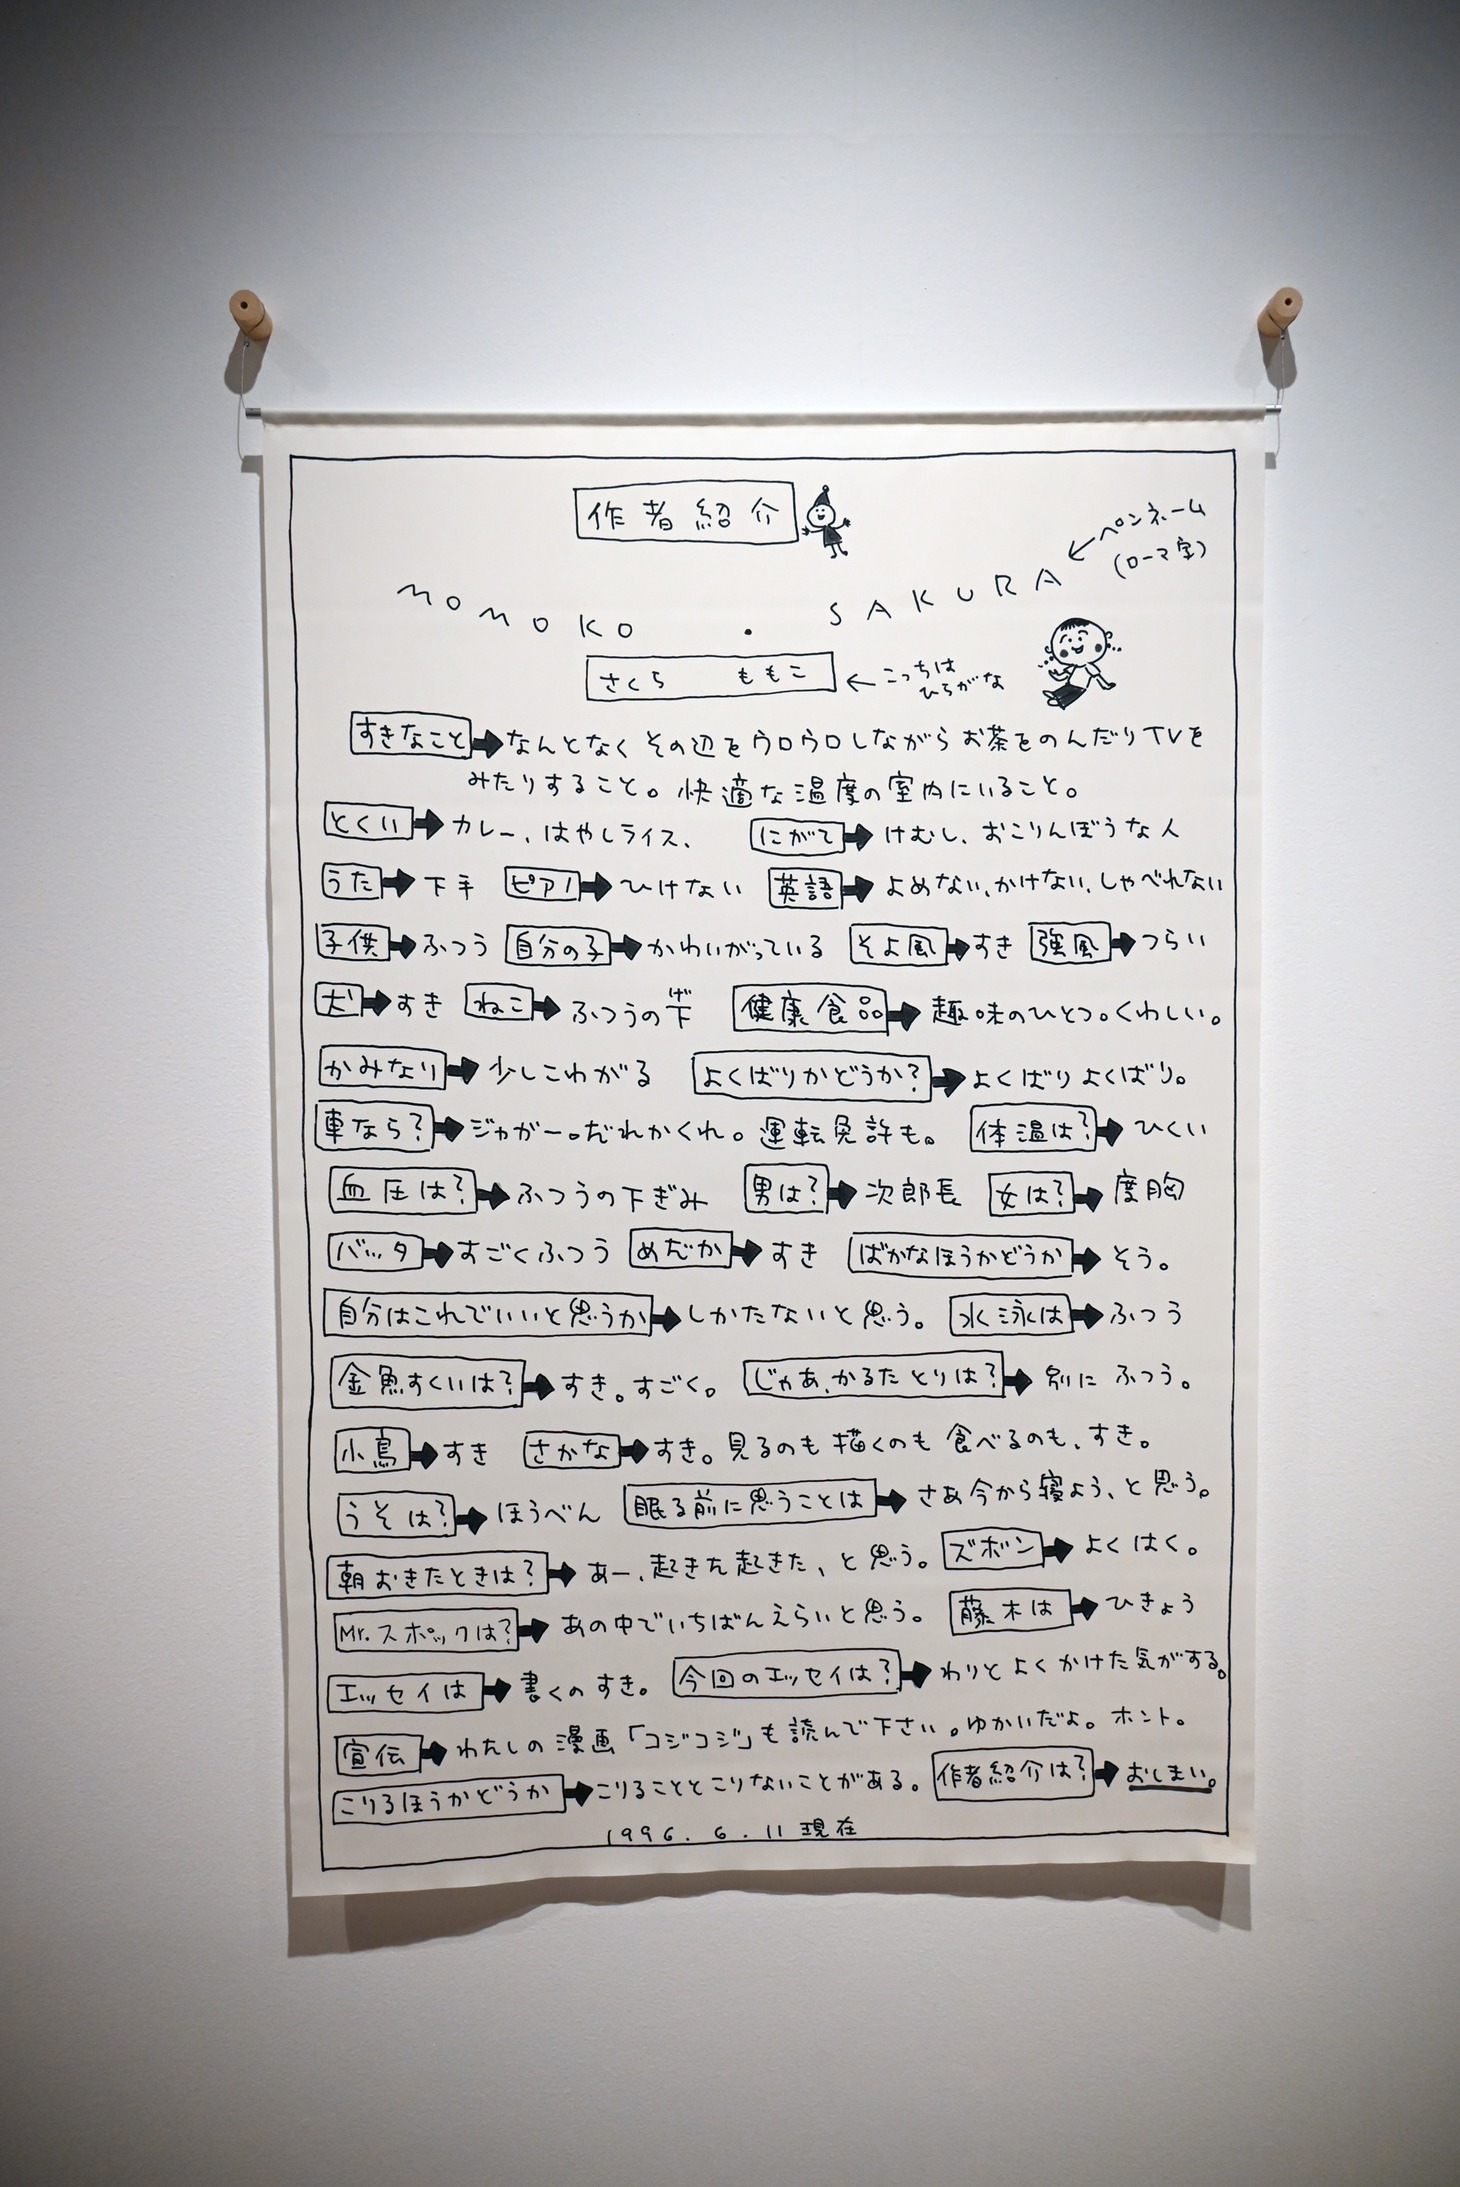 作者紹介
←ペンネーム
(ローマ字)
MOMOKO・SAKURA
さくら ももこ ←こっちは
ひらがな
すきなこと→なんとなくその辺をウロウロしながらお茶をのんだりTVを
みたりすること。快適な温度の室内にいること。
とくい→カレー、はやしライス、 にがて→けむし、おこりんぼうな人
うた→下手 ピアノ→ひけない 英語→よめない、かけない、しゃべれない
子供→ふつう 自分の子→かわいがっている そよ風→すき 強風→つらい
犬→すき ねこ→ふつうの下(げ) 健康食品→趣味のひとつ。くわしい。
かみなり→少しこわがる よくばりかどうか?→よくばりよくばり。
車なら?→ジャガー。だれかくれ。運転免許も。 体温は?→ひくい
血圧は?→ふつうの下ぎみ 男は?→次郎長 女は?→度胸
バッタ→すごくふつう めだか→すき ばかなほうかどうか→そう。
自分はこれでいいと思うか→しかたないと思う。 水泳は→ふつう
金魚すくいは?→すき。すごく。 じゃあ、かるたとりは?→別にふつう。
小鳥→すき さかな→すき。見るのも描くのも食べるのも、すき。
うそは?→ほうべん 眠る前に思うことは→さあ今から寝よう、と思う。
朝おきたときは?→あー、起きた起きた、と思う。 ズボン→よくはく。
Mr.スポックは?→あの中でいちばんえらいと思う。 藤木は→ひきょう
エッセイは→書くのすき。 今回のエッセイは?→わりとよくかけた気がする。
宣伝→わたしの漫画「コジコジ」も読んで下さい。ゆかいだよ。ホント。
こりるほうかどうか→こりることとこりないことがある。 作者紹介は?→おしまい。
1996.6.11現在